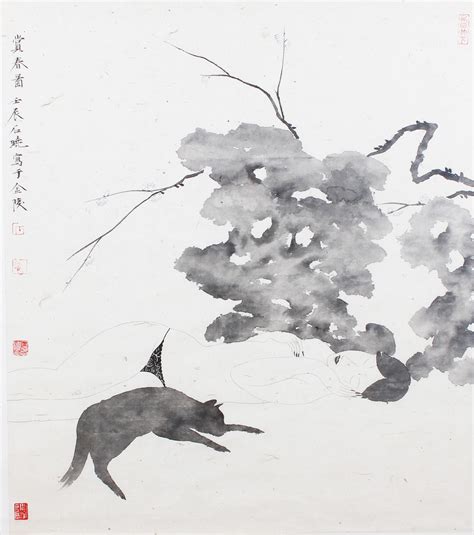 賞春圖壬辰石曉寫于金陵